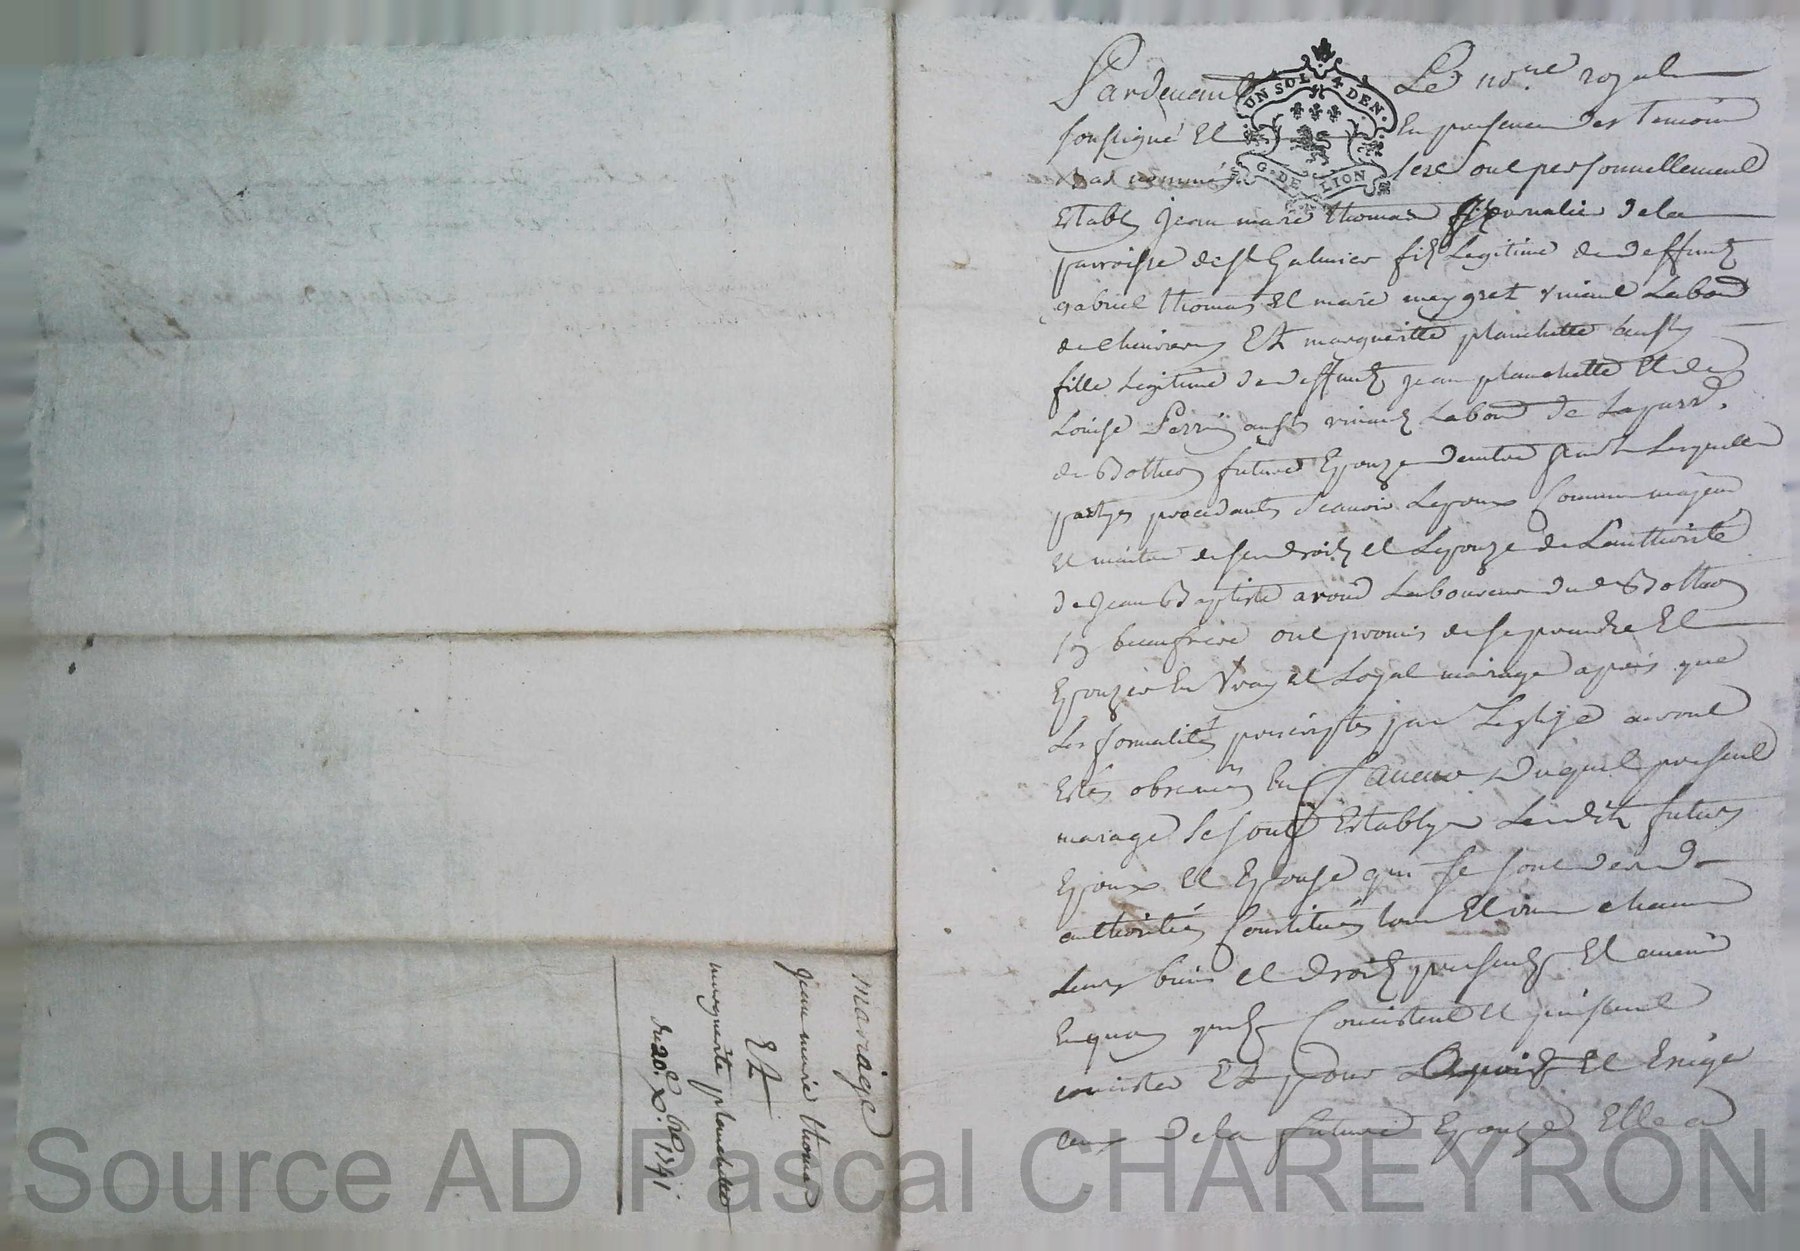 Pardevant Le no.re royal
UN SOL 4 DEN.
G. DE LION
soussigné Et En presence des Temoins
bas nommés se sont personnellement
Establ Jean marie thomas journalier de la
parroisse de st Galmier fils Legitime de deffunt
gabriel thomas et marie meygret vivant Labour
de Et marguerite planchette aussy
fille Legitime de deffunt jean planchette Et de
Louise Perrin aussy vivant Labour de La parr.
de Botheon future Epouze dautre part Lesquelles
partyes procedants scavoir Lepoux comme majeur
et maitre de ses droits et Lepouze de Lauthorité
de Jean Baptiste avond Laboureur dud Botheon
son beaufrere ont promis de se prendre Et
Epouzer En vray et Loyal mariage apres que
Les formalités prescriptes par Leglize auront
Estés observées En faveur Duquel present
mariage se sont Establys Lesdits futurs
Epoux et Epouse qui se sont de
authorités Constitués tous Et un chacun
Leurs biens et droits presents Et avenir
Enquoy quils Consistent et puissent
consister Et pour Et Exiger
ceux de la future Epouze Elle a
mariage
Jean marie thomas
Et
marguerite planchette
du 20.e x.bre 1741
Source AD Pascal CHAREYRON